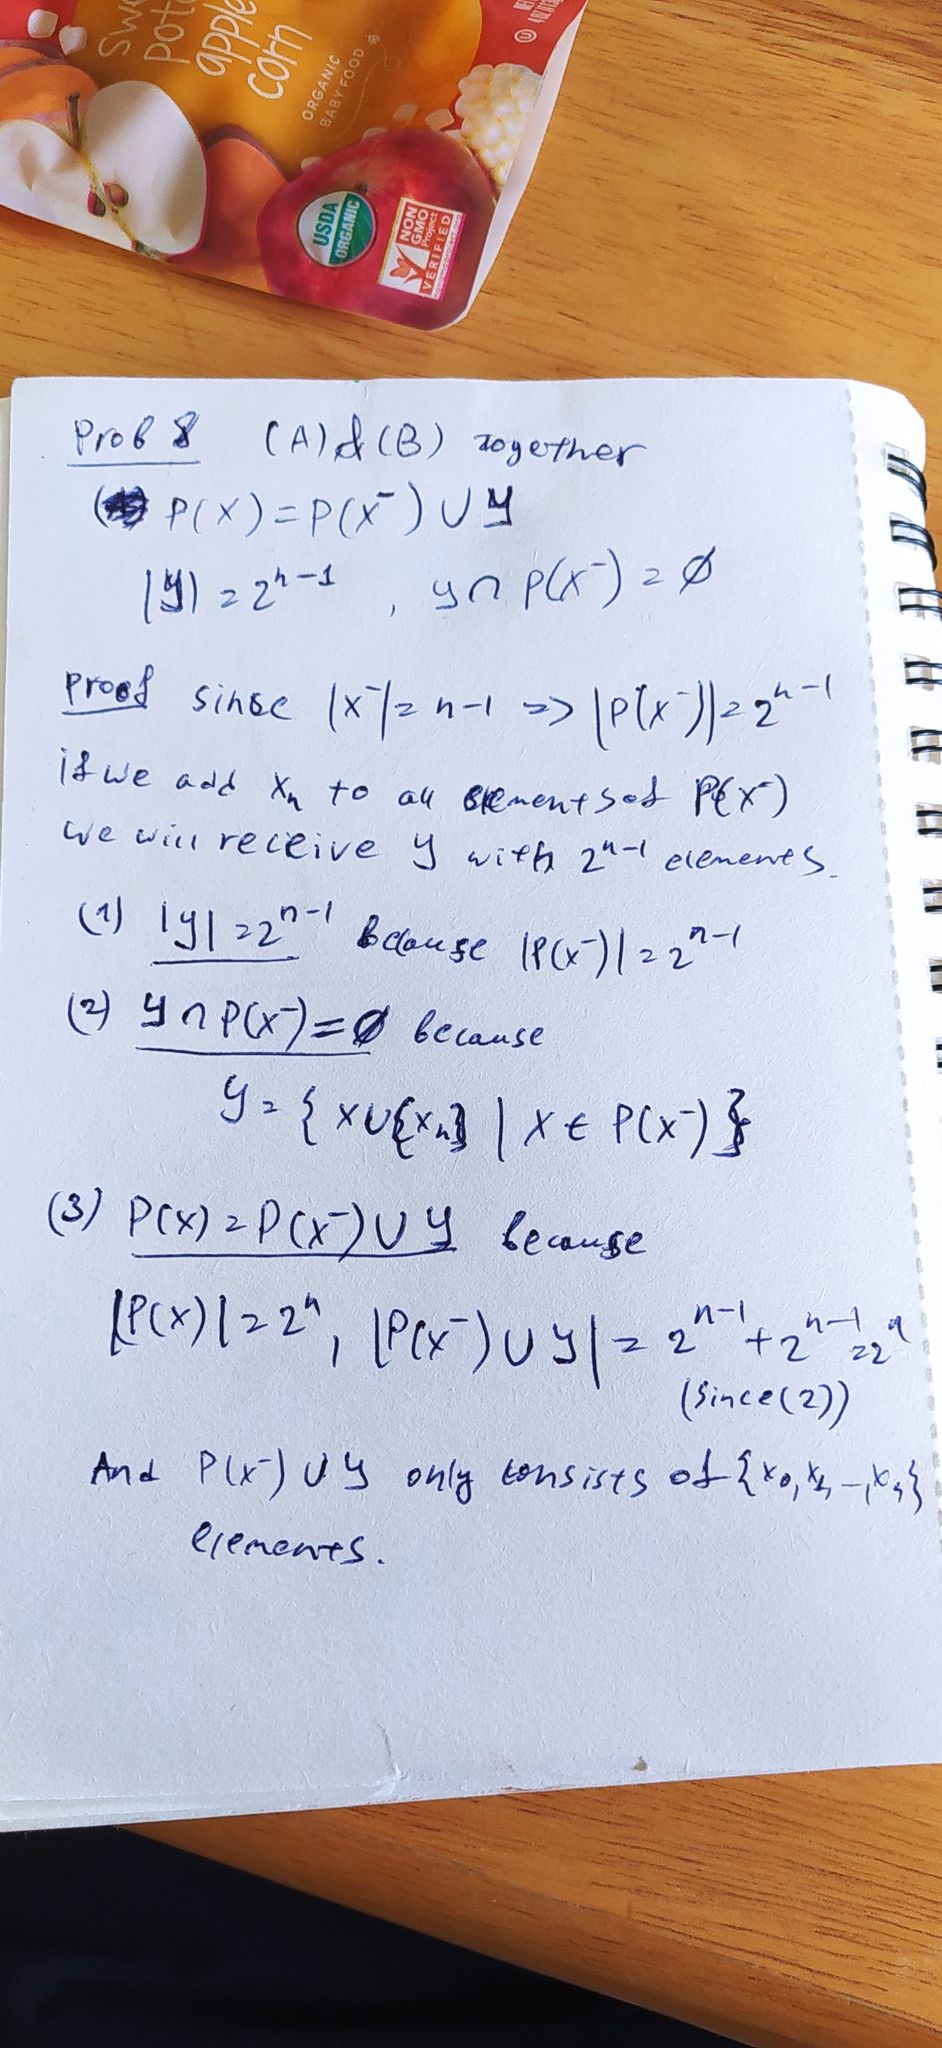 Swe
pota
apple
corn
ORGANIC
BABY FOOD
USDA
ORGANIC
NON
GMO
Project
VERIFIED
Prob 8 (A) & (B) Together
P(X) = P(X⁻) ∪ Y
|Y| = 2ⁿ⁻¹, Y ∩ P(X⁻) = ∅
Proof since |X⁻| = n-1 => |P(X⁻)| = 2ⁿ⁻¹
if we add xₙ to all elements of P(X⁻)
we will receive Y with 2ⁿ⁻¹ elements.
(1) |Y| = 2ⁿ⁻¹ because |P(X⁻)| = 2ⁿ⁻¹
(2) Y ∩ P(X⁻) = ∅ because
Y = { X ∪ {xₙ} | X ∈ P(X⁻) }
(3) P(X) = P(X⁻) ∪ Y because
|P(X)| = 2ⁿ, |P(X⁻) ∪ Y| = 2ⁿ⁻¹ + 2ⁿ⁻¹ = 2ⁿ
(since (2))
And P(X⁻) ∪ Y only consists of {x₀, x₁, –, xₙ}
elements.